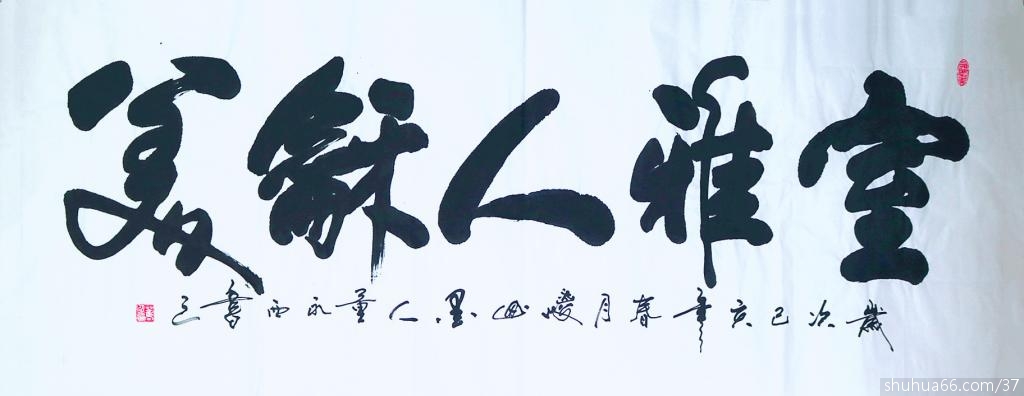 室雅人龢美
歲次己亥年春月墨人董永西書
shuhua66.com/37